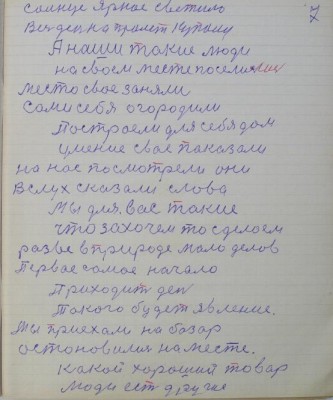 солнце ярное светило
7
А наши такие люди
на своем месте поселились
место свое заняли
Сами себя огородили
Построем для себя дом
умение свае показали
на нас посмотрели они
Вслух сказали слова
Мы для вас такие
что захочем то сделоем
разве в природе мало делов
Первое самое начало
Приходит ден
Такого будет явление.
Мы приехали на базар
остоновилис на месте.
какой хороший товар
люди ест другие